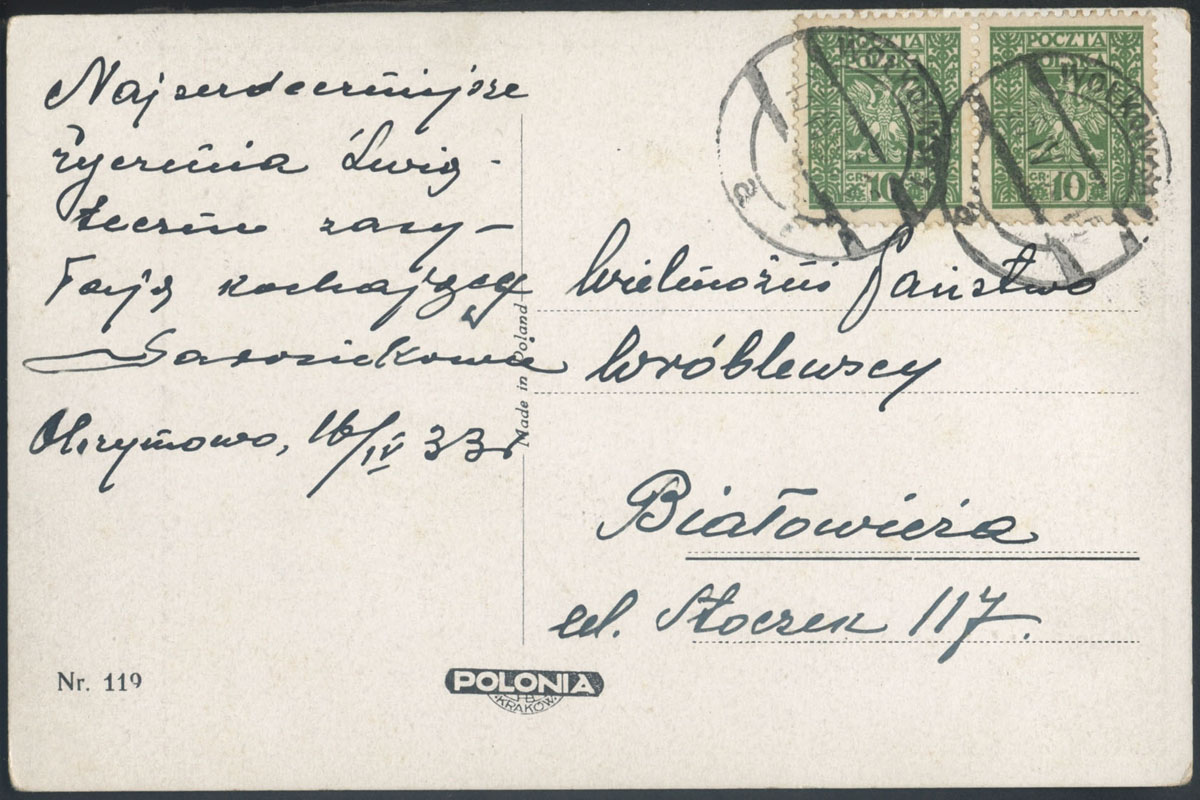 Najserdeczniejsze
życzenia Świą-
teczne zasy-
łają kochający
Wielmożni Państwo
Wróblewscy
Białowieża
ul. Stoczek 117.
16/IV 33 r
Made in Poland
Nr. 119
POLONIA
KRAKÓW
POCZTA
POLSKA
GR. 10
POCZTA
POLSKA
GR. 10
WOŁKOWYSK
a
WOŁKOWYSK